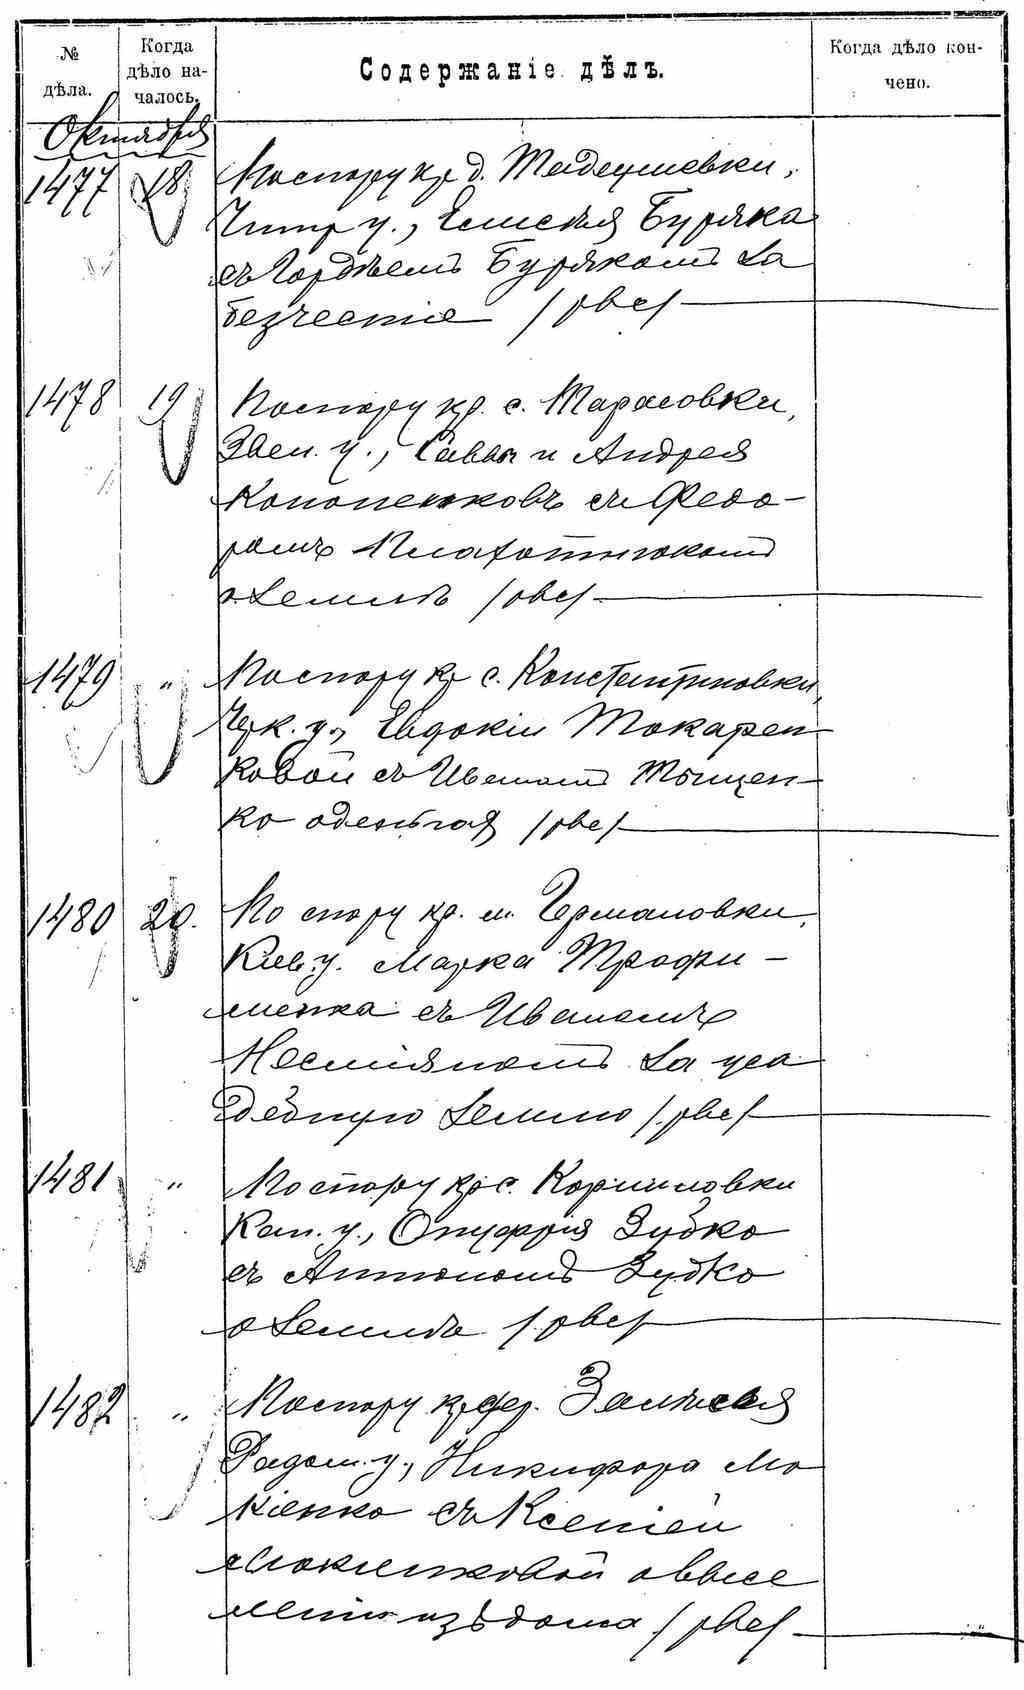 № дѣла.
Когда дѣло началось.
Содержаніе дѣлъ.
Когда дѣло кончено.
Октября
1477 18 По спору кр. д. Тадеушевки,
Чигир. у., Елисея Буряка
съ Гордѣемъ Бурякомъ за
безчестіе
1478 19 По спору кр. с. Тарасовки,
Звен. у., Саввы и Андрея
Кононенковъ съ Федо-
ромъ
о землѣ
1479 " По спору кр. с. Константиновки,
Черк. у., Евдокіи Токарен-
ковой съ Иваномъ Тыщен-
ко о деньгах
1480 20. По спору кр. м. Германовки,
Кіев. у. Марка Трофи-
менка съ Иваномъ
Несміяномъ за уса
дебную землю
1481 " По спору кр. с. Корниловки
Кан. у., Онуфрія Зубко
съ Антономъ Зубко
о землѣ
1482 " По спору кр. дер. Залѣсья
Радом. у., Никифора Мо
кіенко съ Ксеніей
Мокіенковой о высе
леніи изъ дома